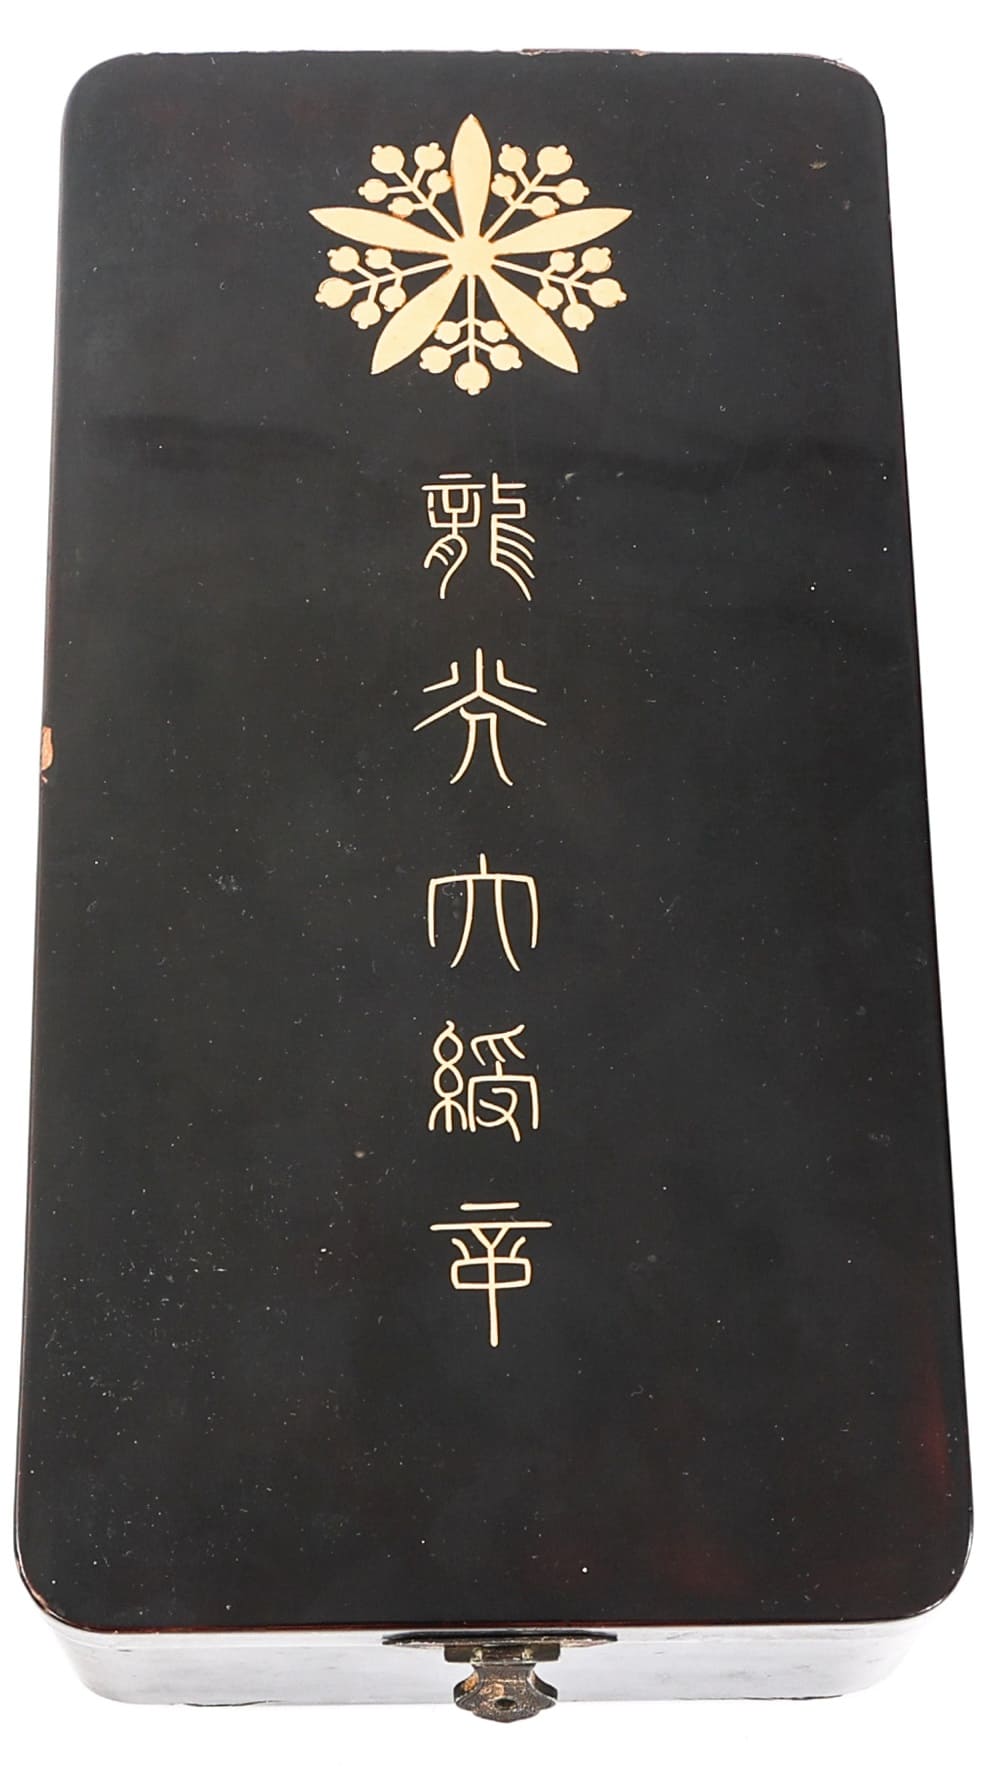 龍光大綬章